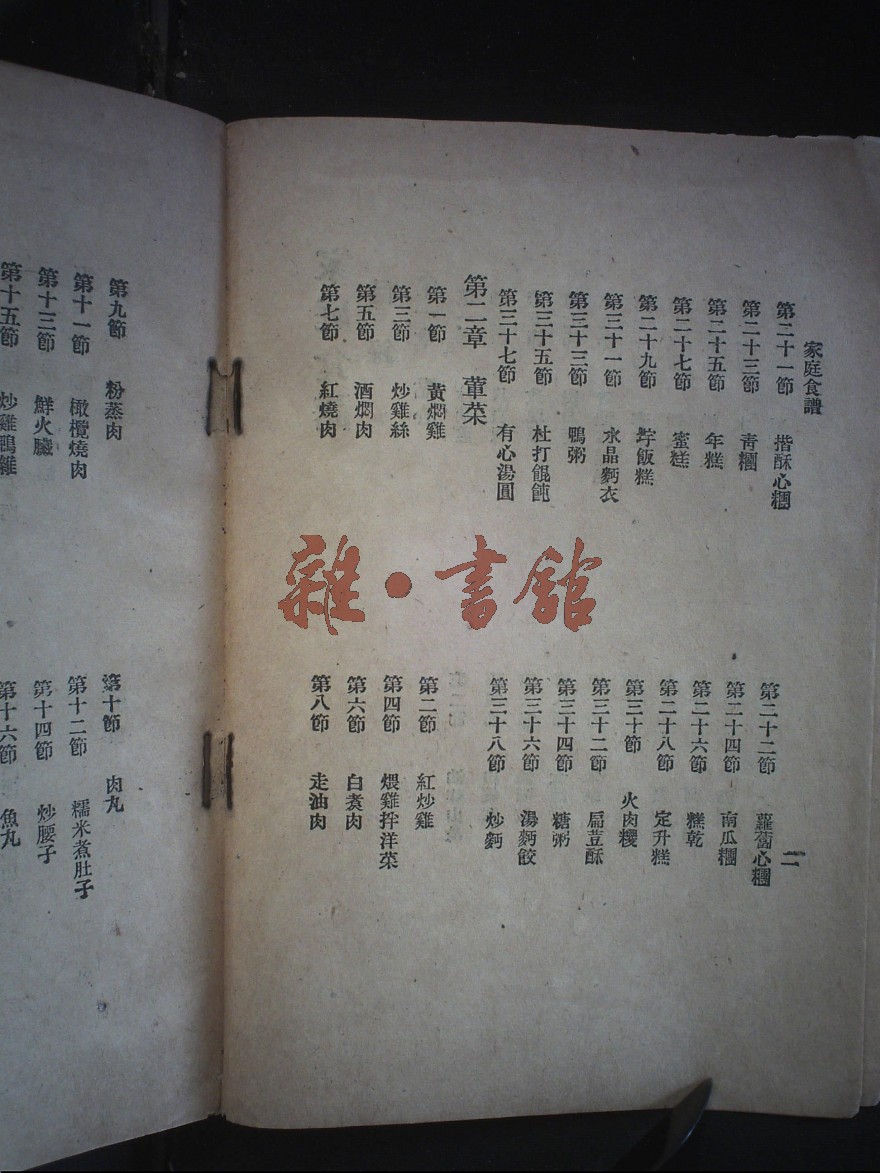 家庭食譜
二
第二十一節　揩酥心糰
第二十二節　蘿蔔心糰
第二十三節　青糰
第二十四節　南瓜糰
第二十五節　年糕
第二十六節　糕乾
第二十七節　蜜糕
第二十八節　定升糕
第二十九節　飯糕
第三十節　火肉糉
第三十一節　水晶麪衣
第三十二節　扁荳酥
第三十三節　鴨粥
第三十四節　糖粥
第三十五節　杜打餛飩
第三十六節　湯麪餃
第三十七節　有心湯圓
第三十八節　炒麪
第二章　葷菜
第一節　黃燜雞
第二節　紅炒雞
第三節　炒雞絲
第四節　煨雞拌洋菜
第五節　酒燜肉
第六節　白煑肉
第七節　紅燒肉
第八節　走油肉
第九節　粉蒸肉
第十節　肉丸
第十一節　橄欖燒肉
第十二節　糯米煮肚子
第十三節　鮮火臟
第十四節　炒腰子
第十五節　炒雞鴨雜
第十六節　魚丸
雜·書館